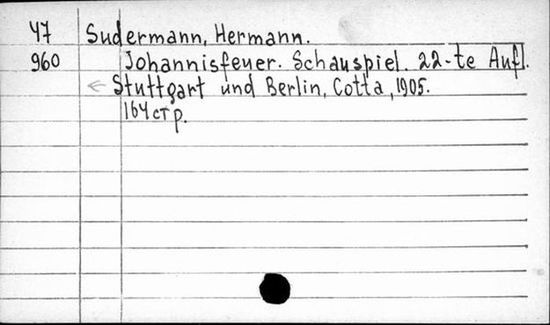 47 Sudermann, Hermann.
960 Johannisfeuer. Schauspiel. 22-te Aufl.
← Stuttgart und Berlin, Cotta, 1905.
164 стр.